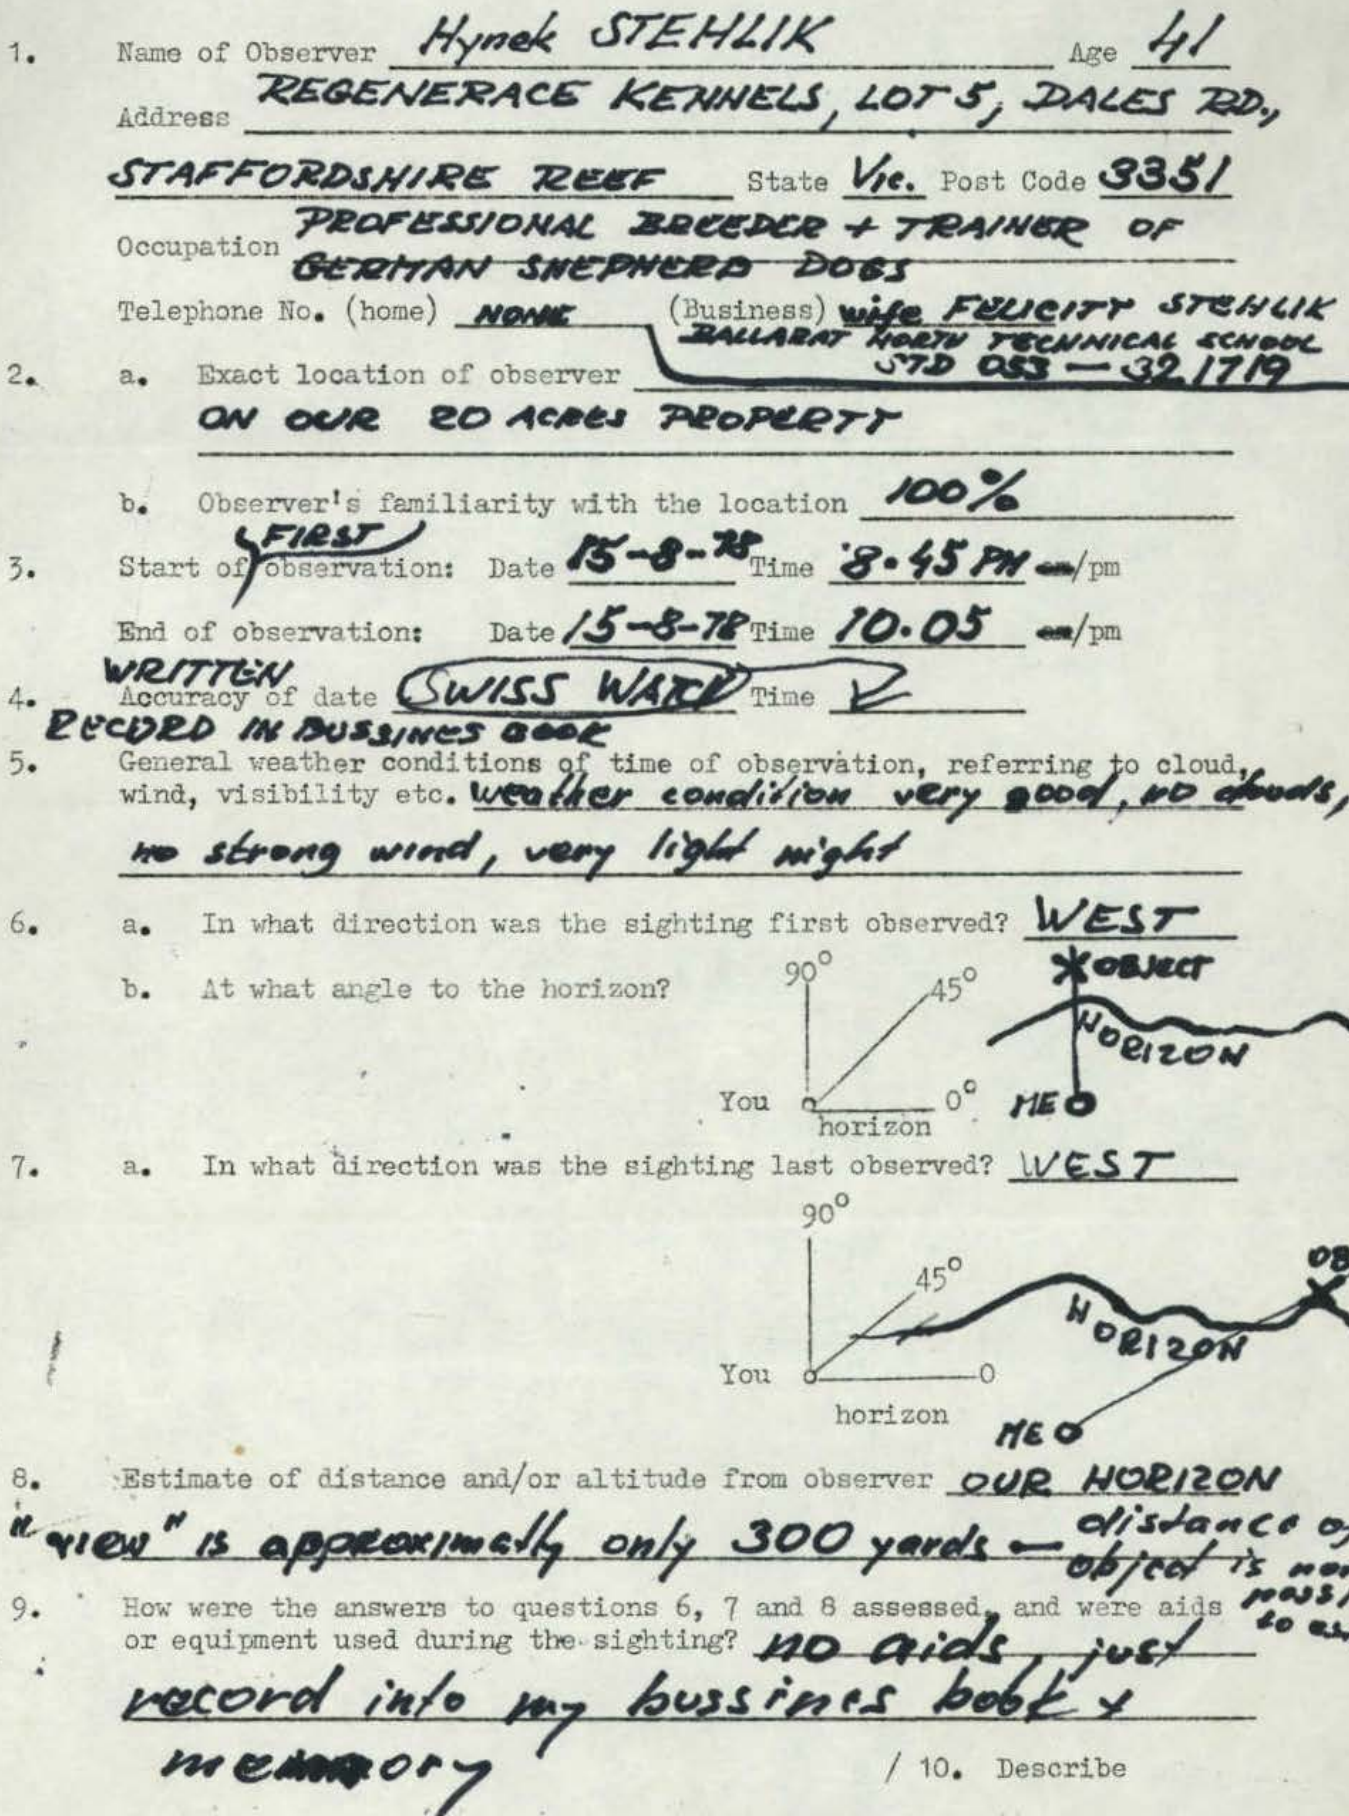 1. Name of Observer Hynek STEHLIK Age 41
Address REGENERACE KENNELS, LOT 5, DALES RD.,
STAFFORDSHIRE REEF State Vic. Post Code 3351
Occupation PROFESSIONAL BREEDER + TRAINER OF
GERMAN SHEPHERD DOGS
Telephone No. (home) NONE (Business) wife FELICITY STEHLIK
BALLARAT NORTH TECHNICAL SCHOOL
STD 053 - 32 1719
2. a. Exact location of observer
ON OUR 20 ACRES PROPERTY
b. Observer's familiarity with the location 100%
FIRST
3. Start of observation: Date 15-8-78 Time 8.45 PM am/pm
End of observation: Date 15-8-78 Time 10.05 am/pm
WRITTEN
4. Accuracy of date SWISS WATCH Time
RECORD IN BUSSINES BOOK
5. General weather conditions of time of observation, referring to cloud,
wind, visibility etc. weather condition very good, no clouds,
no strong wind, very light night
6. a. In what direction was the sighting first observed? WEST
b. At what angle to the horizon?
90° 45° OBJECT
HORIZON
You 0° ME
horizon
7. a. In what direction was the sighting last observed? WEST
90°
45° OB
HORIZON
You 0
horizon
ME
8. Estimate of distance and/or altitude from observer OUR HORIZON
"view" is approximatly only 300 yards - distance
object is
9. How were the answers to questions 6, 7 and 8 assessed, and were aids
to
or equipment used during the sighting? no aids, just
record into my bussines book +
memory
/ 10. Describe